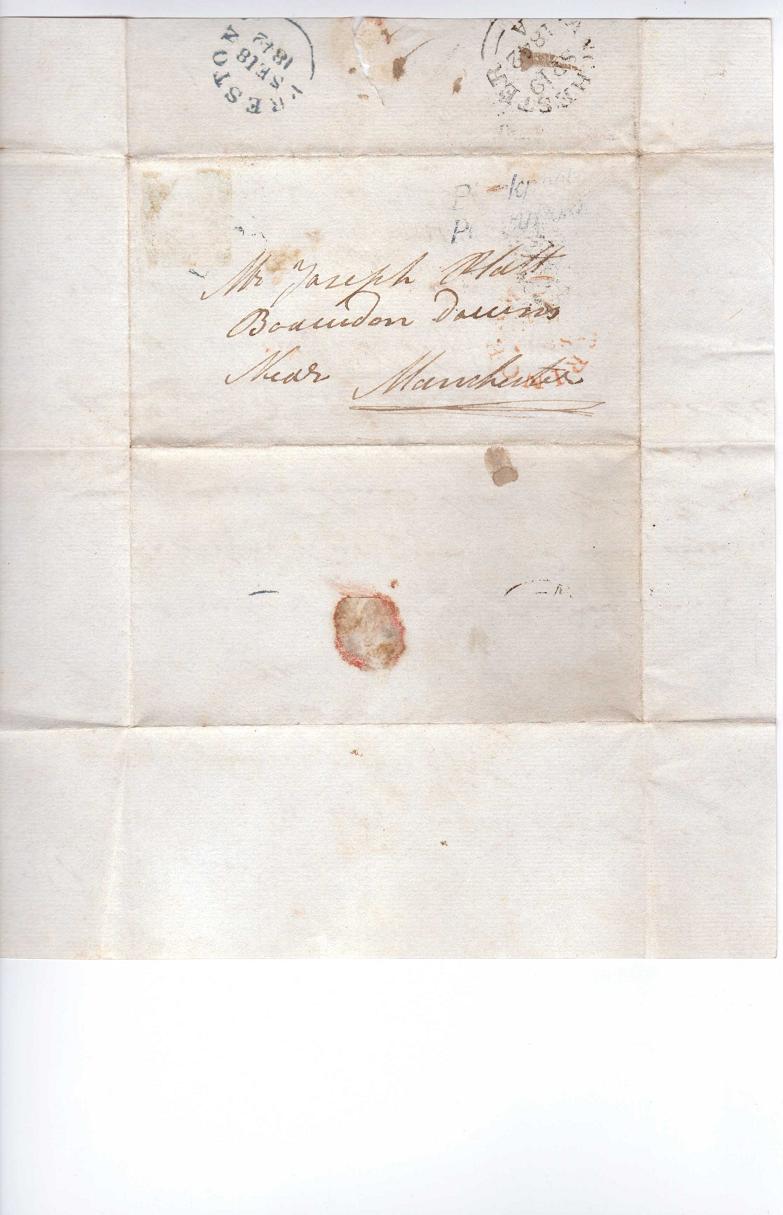 PRESTON
SE 18
1842
MANCHESTER
SP 19
1842
A
Mr Joseph Platt
Bowdon Downs
Near Manchester